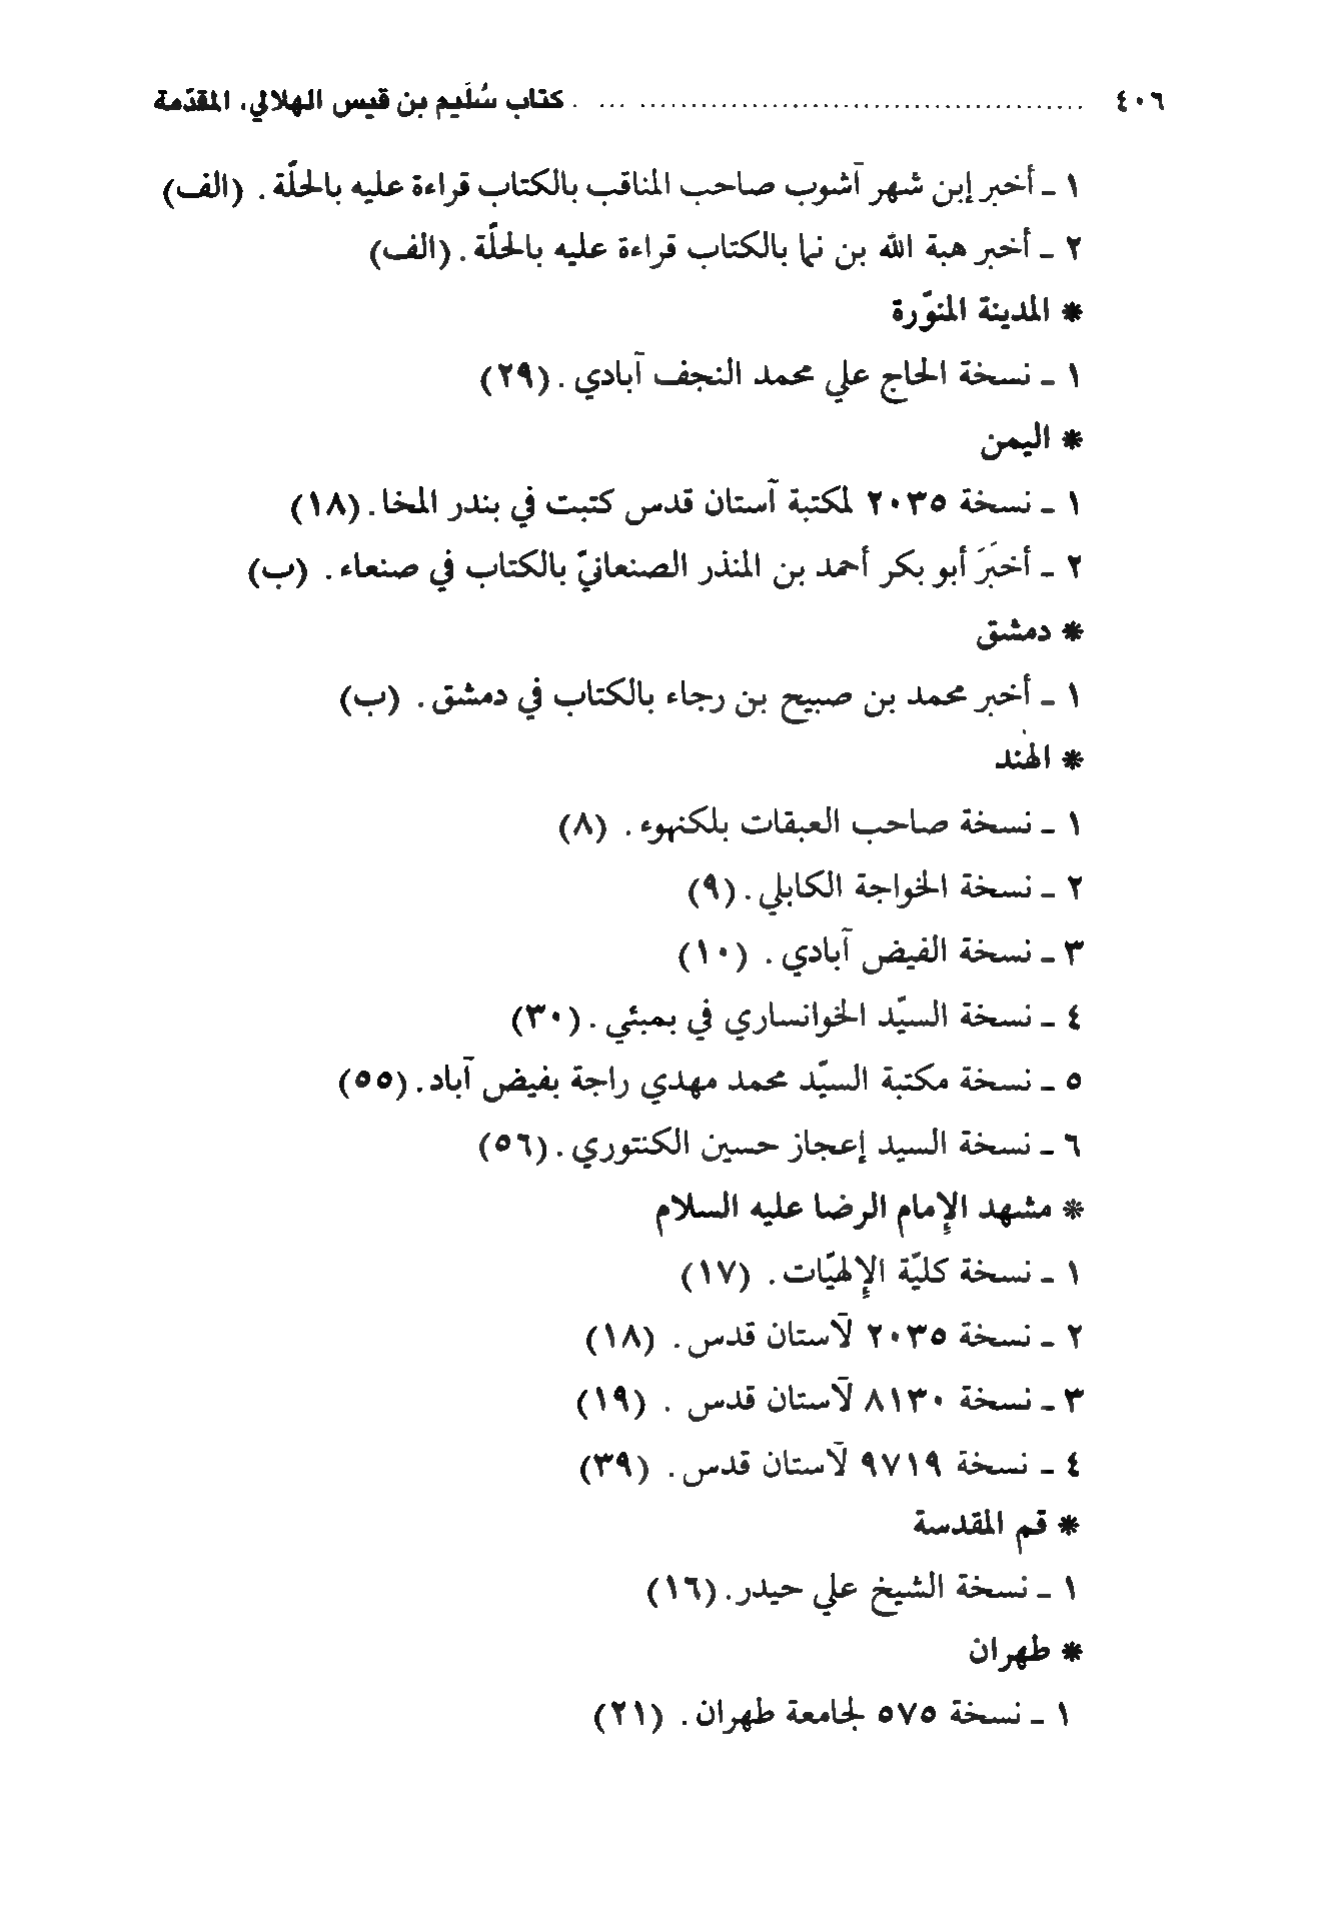 ٤٠٦ ................................................ كتاب سُلَيم بن قيس الهلالي، المقدّمة
١ ـ أخبر إبن شهر آشوب صاحب المناقب بالكتاب قراءة عليه بالحلّة . (الف)
٢ ـ أخبر هبة الله بن نما بالكتاب قراءة عليه بالحلّة . (الف)
* المدينة المنوّرة
١ ـ نسخة الحاج علي محمد النجف آبادي . (٢٩)
* اليمن
١ ـ نسخة ٢٠٣٥ لمكتبة آستان قدس كتبت في بندر المخا . (١٨)
٢ ـ أخبَرَ أبو بكر أحمد بن المنذر الصنعانيّ بالكتاب في صنعاء . (ب)
* دمشق
١ ـ أخبر محمد بن صبيح بن رجاء بالكتاب في دمشق . (ب)
* الهند
١ ـ نسخة صاحب العبقات بلكنهوء . (٨)
٢ ـ نسخة الخواجة الكابلي . (٩)
٣ ـ نسخة الفيض آبادي . (١٠)
٤ ـ نسخة السيّد الخوانساري في بمبئي . (٣٠)
٥ ـ نسخة مكتبة السيّد محمد مهدي راجة بفيض آباد . (٥٥)
٦ ـ نسخة السيد إعجاز حسين الكنتوري . (٥٦)
* مشهد الإمام الرضا عليه السلام
١ ـ نسخة كليّة الإلهيّات . (١٧)
٢ ـ نسخة ٢٠٣٥ لآستان قدس . (١٨)
٣ ـ نسخة ٨١٣٠ لآستان قدس . (١٩)
٤ ـ نسخة ٩٧١٩ لآستان قدس . (٣٩)
* قم المقدسة
١ ـ نسخة الشيخ علي حيدر . (١٦)
* طهران
١ ـ نسخة ٥٧٥ لجامعة طهران . (٢١)